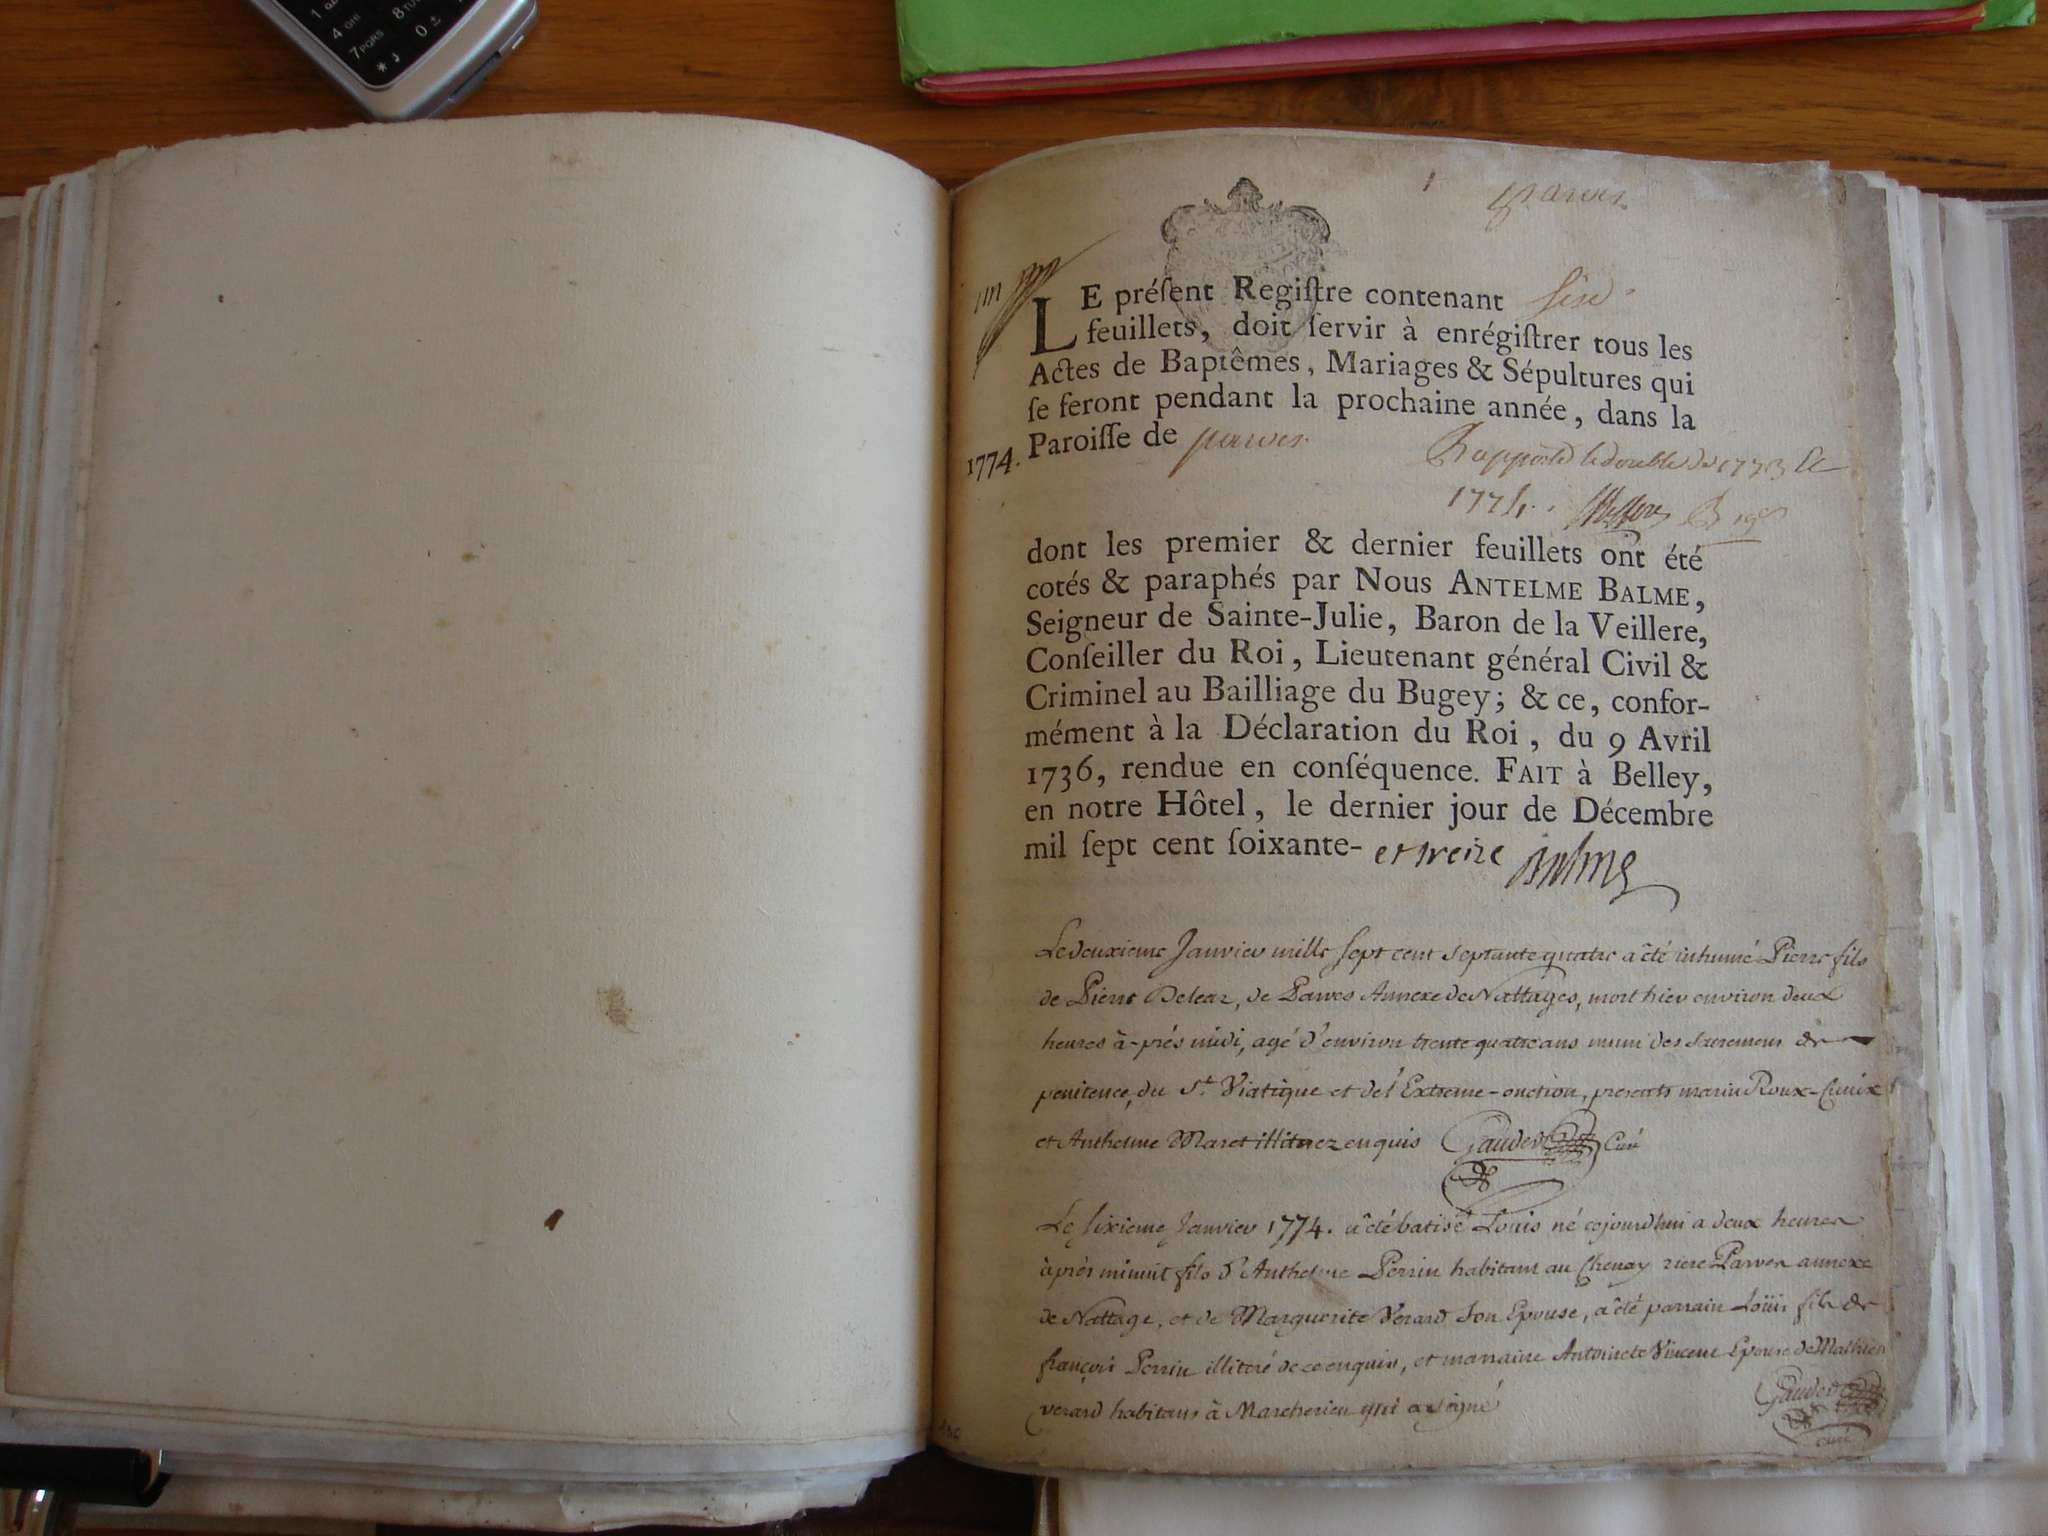 1
parves.
LE préſent Regiſtre contenant
feuillets, doit ſervir à enrégiſtrer tous les
Actes de Baptêmes, Mariages & Sépultures qui
ſe feront pendant la prochaine année, dans la
1774. Paroiſſe de parves.
Rapporté le double de 1773 &
1774.
dont les premier & dernier feuillets ont été
cotés & paraphés par Nous ANTELME BALME,
Seigneur de Sainte-Julie, Baron de la Veillere,
Conſeiller du Roi, Lieutenant général Civil &
Criminel au Bailliage du Bugey; & ce, confor-
mément à la Déclaration du Roi, du 9 Avril
1736, rendue en conſéquence. FAIT à Belley,
en notre Hôtel, le dernier jour de Décembre
mil ſept cent ſoixante- et treize Balme
Le deuxieme Janvier mille sept cent septante quatre a êté inhumé Pierre fils
de Pierre Deleaz, de Parves Annexe de Nattages, mort hier environ deux
heures à-prés midi, agé d'environ trente quatre ans muni des sacremens de
penitence, du St. Viatique et de l'Extreme-onction, presents marin Roux-Cunix
et Anthelme Maret illiterez enquis Gauder Curé
Le sixieme Janvier 1774. a êté batisé Louis né cejourd'hui a deux heures
àprés minuit fils d'Anthelme Perrin habitant au Chenay riere Parves annexe
de Nattage, et de Marguerite Verard son Epouse, a êté parrain Loüis fils de
françois Perrin illiteré de ce enquis, et marraine Antoinete Vincent Epouse de Mathieu
verard habitans à Marcherieu qui a signé
Gauder
curé
1 ab
4 GHI
7 PQRS
8 TUV
*
0 ±